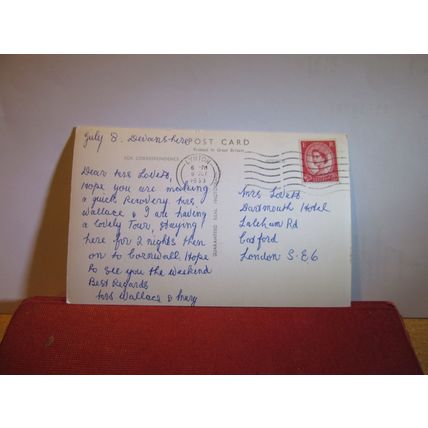 July 8. Devonshire
POST CARD
Printed in Great Britain
FOR CORRESPONDENCE
LYNTON
1953
GUARANTEED REAL
Dear Mrs Lovett,
Hope you are making
a quick Recovery. Mrs
Wallace & I are having
a lovely Tour, staying
here for 2 nights then
on to Cornwall Hope
to see you the weekend
Best Regards
Mrs Wallace & Mary
Mrs Lovett
Dartmouth Hotel
Laleham Rd
Catford
London S.E6